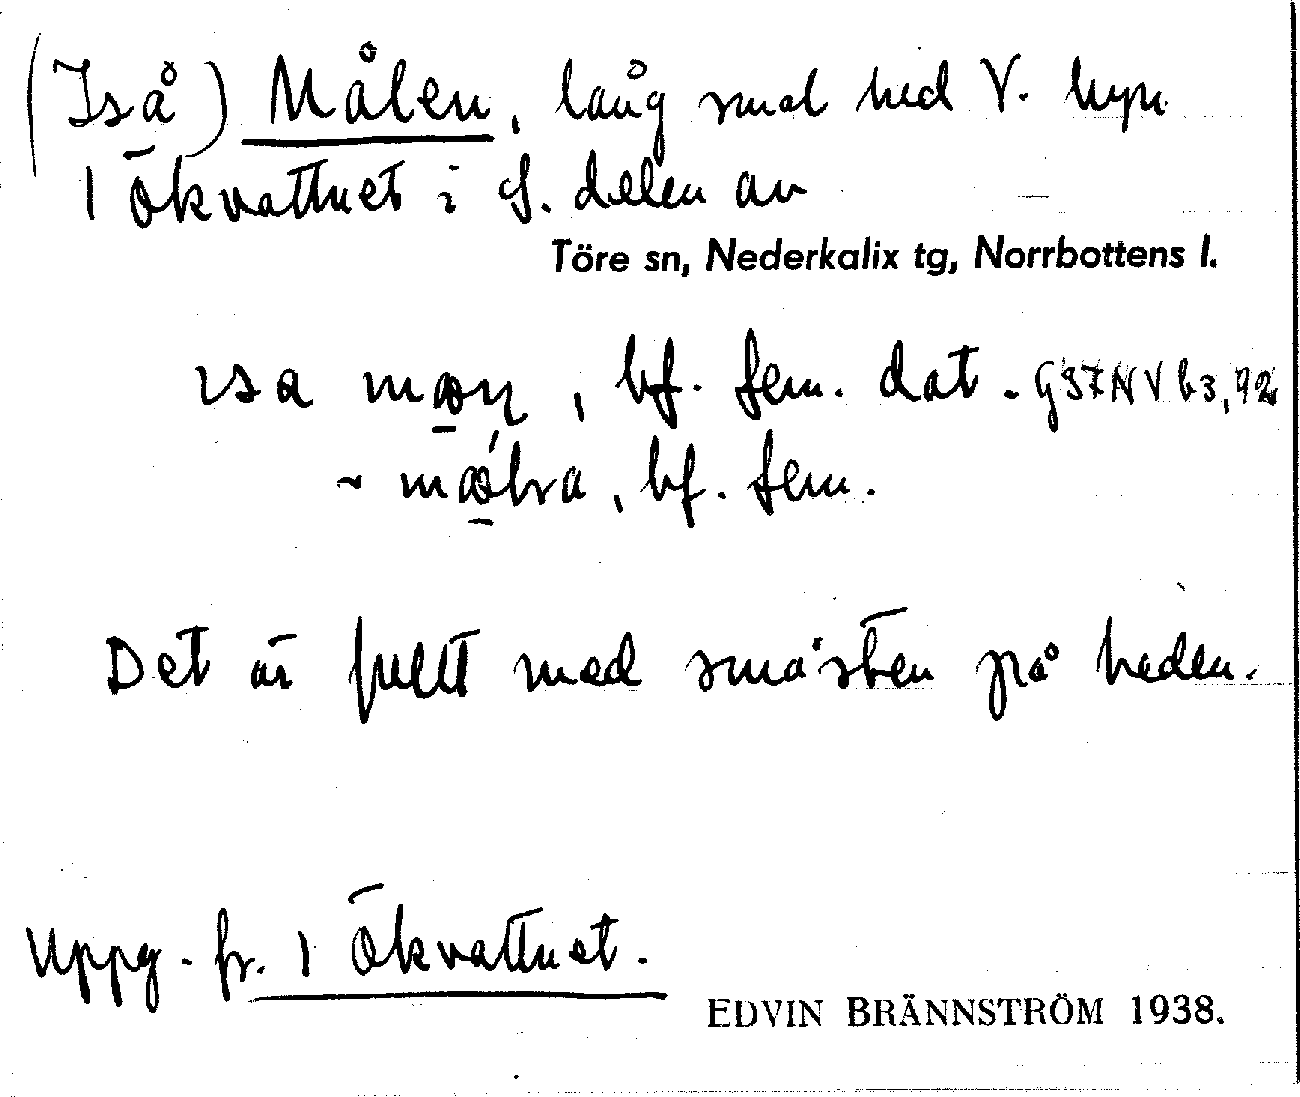 (Iså) Målen, lång smal hed V. hpn
1 Ökvattnet i S. delen av
Töre sn, Nederkalix tg, Norrbottens l.
bf. fem. dat.
~ bf. fem.
Det är fullt med småsten på heden.
Uppg. fr. 1 Ökvattnet.
EDVIN BRÄNNSTRÖM 1938.